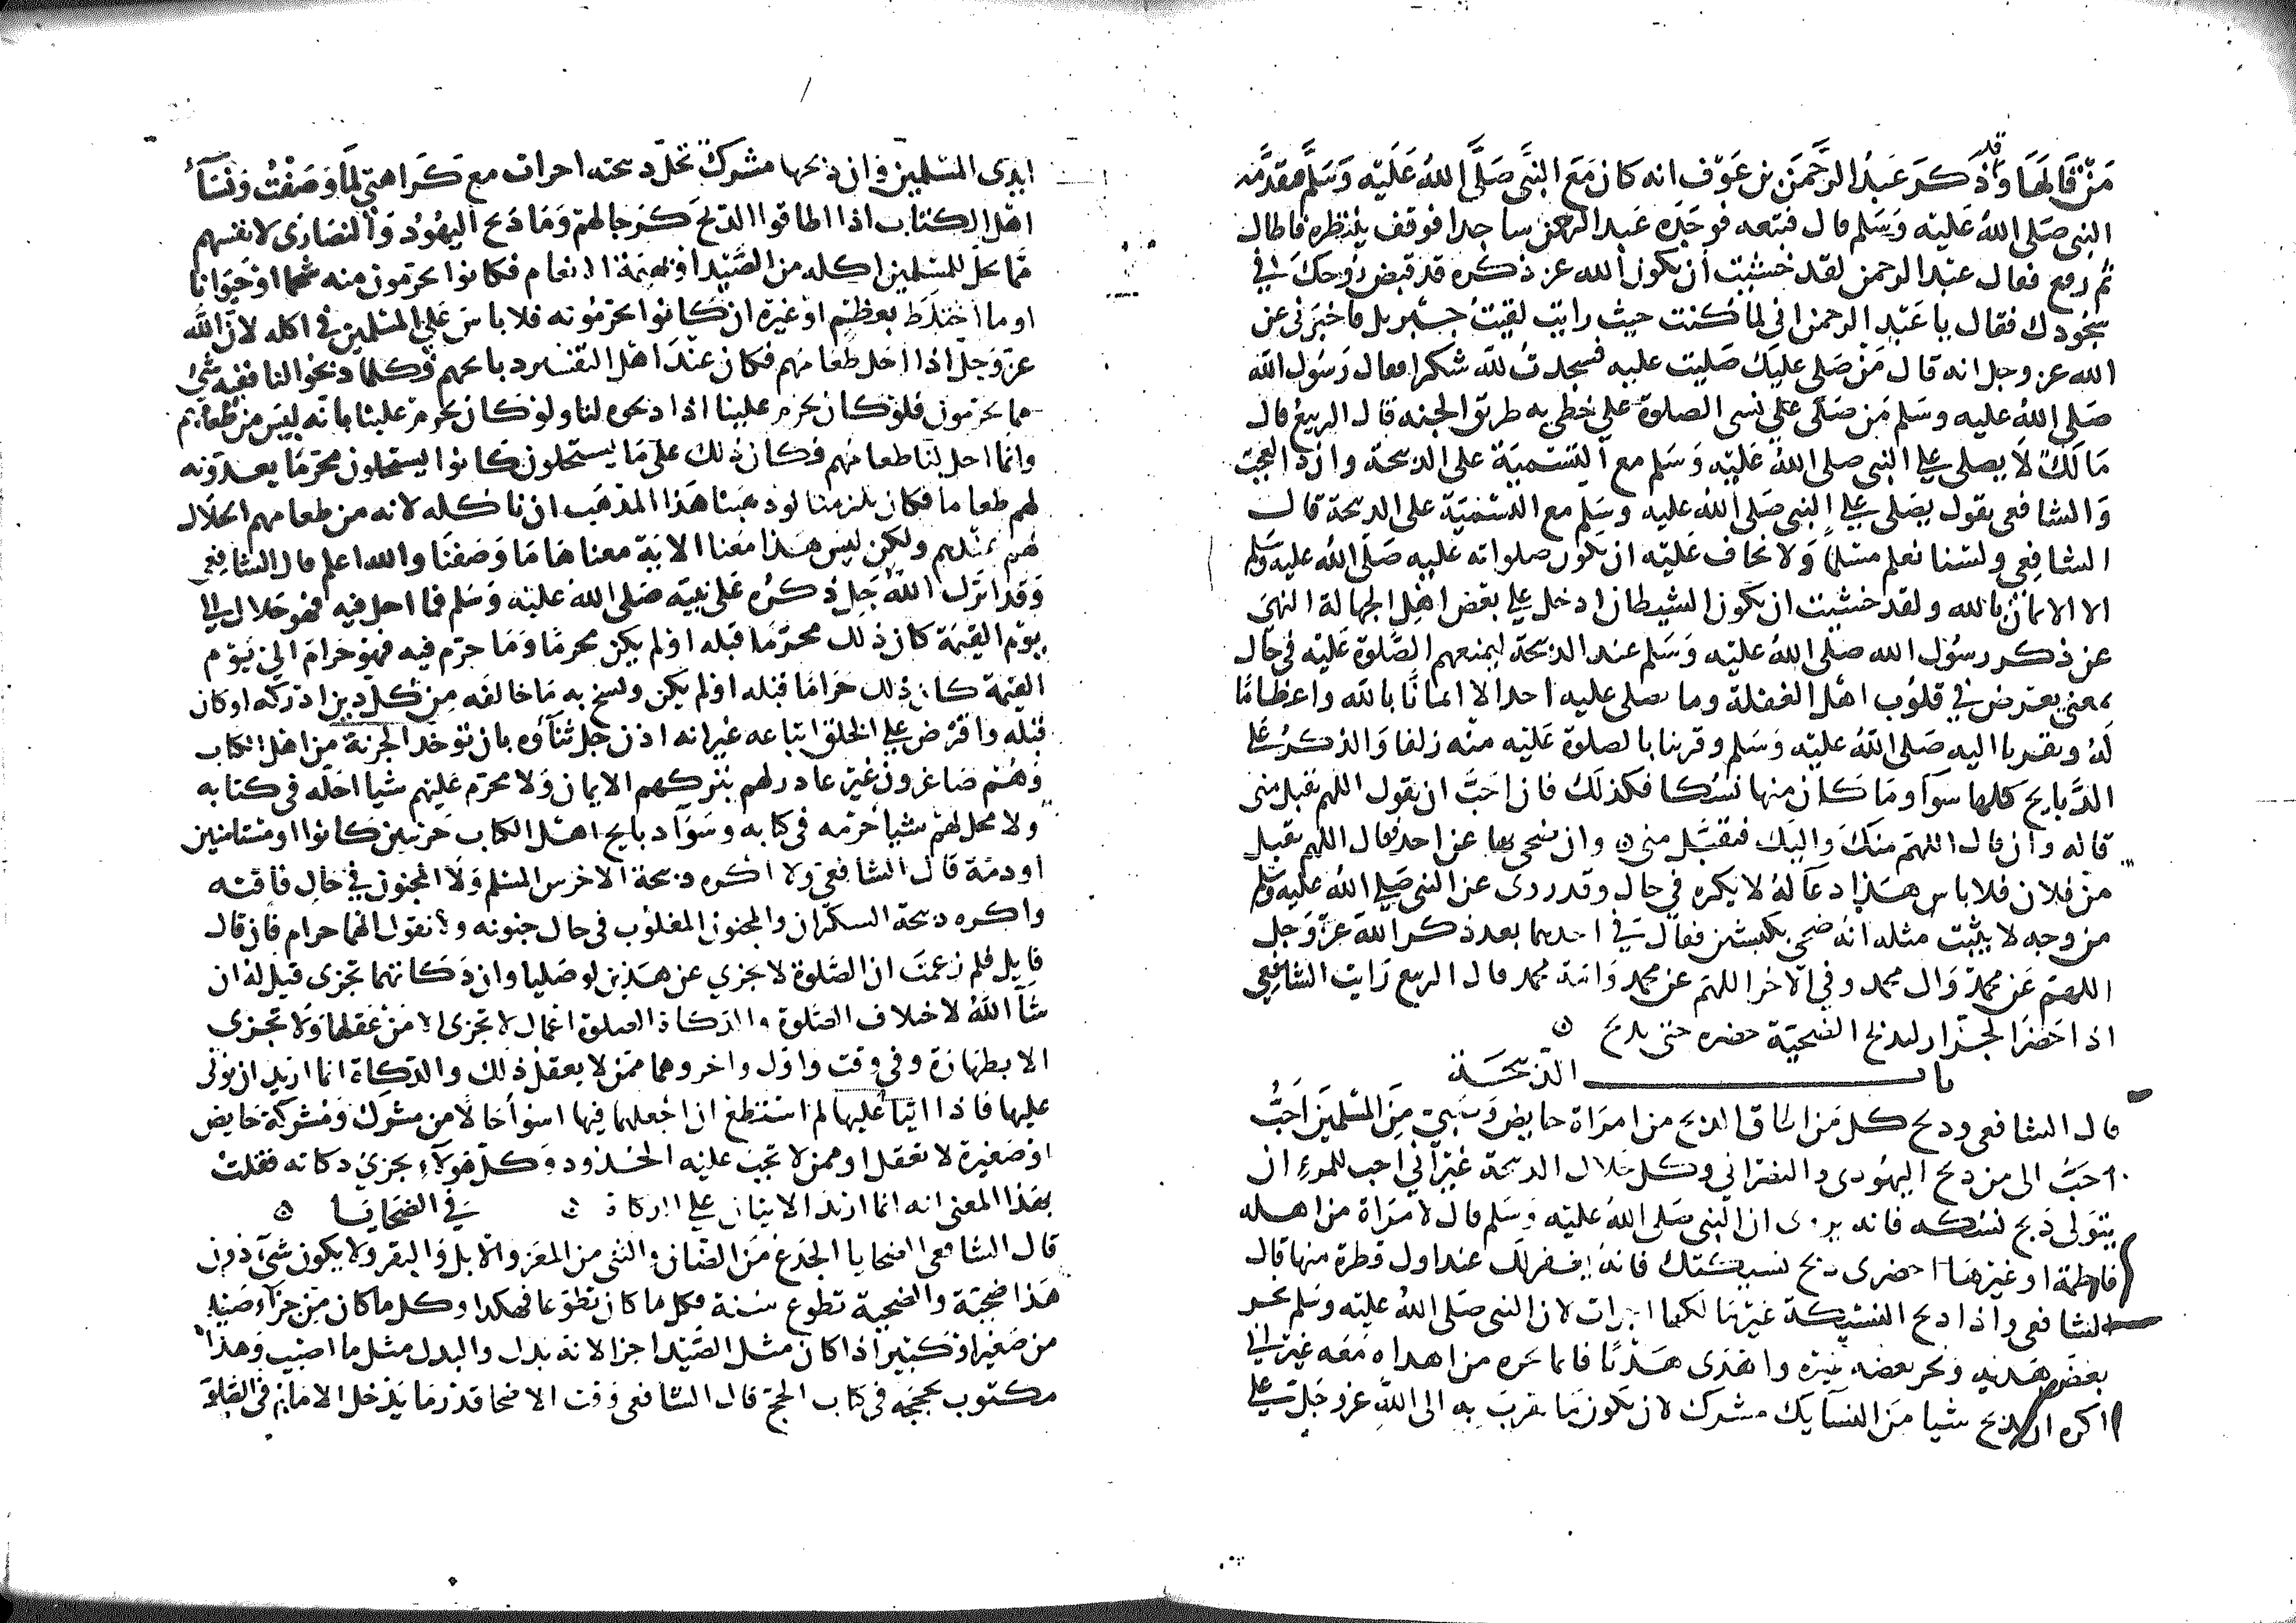 مَنْ قَالَهَا وَقد ذَكَرَ عَبْدُ الرَّحْمَنِ بن عَوْف انه كان مَعَ النَّبى صَلَّى اللهُ عَلَيْه وَسَلَّم فقدَّمه
النبى صَلى اللهُ عَليْه وَسَلم قال فتبعه فوجَدَه عَبد الرحمن ساجدا فوقف ينتظره فاطال
ثم رفع فقال عبْد الرحمن لقد خشيت أن يكون الله عز ذكره قد قبض رُوحكَ فى
سجُودك فقال يا عَبْد الرحمن انى لما كنت حيث رايت لقيتُ جبْريل فاخبَرنى عن
الله عز وجل انه قال مَنْ صَلى عليكَ صليت عليه فسجدتُ لله شكرا فقال رَسُول الله
صَلى اللهُ عليه وسَلم مَن صَلى على نسى الصلوة على خطى به طريق الجنه قال الربيع قال
مَالكٌ لَا يصلى على النبى صلى اللهُ عَليْه وَسَلم مع التسْمِيَة على الذبيحة وان ذا لعجبٌ
وَالشافعى يقول يصَلى على النبى صَلى اللهُ عليه وسَلم مع التسْميَة على الذبيحة قال
الشافِعى ولسْنا نعلم مسْلمًا وَلا نخاف عَليْه ان تكون صلواته عليه صَلى اللهُ عليه وسلم
الا الايمان بالله ولقد خشيت ان يكون الشيطان ادخل على بعْض اهْل الجهالة النهىَ
عن ذكر رسُول الله صَلى اللهُ عليْه وَسَلم عند الذبيحة ليمنعهم الصَّلوة عَليْه فى حال
لمعنى يعترض فى قلوُب اهْل الغفلة وما يصلى عليه احد الا ايمانًا بالله واعظامًا
لهُ وتقربا اليه صَلى اللهُ عليْه وَسَلم وقربنا بالصلوة عَليْه منْه زلفا وَالذكرُ عَلى
الذَّبايح كلها سَوآ ومَا كان منها نسُكا فكذلكَ فان احَبَّ ان يقول اللهم تقبل منى
قاله وان قال اللهمَ منكَ واليك فتقبَّل منى وان ضحى بها عن احد فقال اللهم تقبل
من فلان فلا باس هَذا دعآ لهُ لا يكره فى حال وقد روى عن النبى صَلى اللهُ عليه وسلم
من وجه لا يثبُت مثله انه ضحى بكبشين فقال فى احدهما بعد ذكر اللهِ عزّ وَجل
اللهم عَن محمدٍ وَال محمد وفى الآخر اللهم عن محمد وَامة محمد قال الربيع رَايت الشافِعى
اذا حَضرَ الجزّار ليذبح الضحيّة حضره حتى يذبح
باب الذبيحَة
قال الشافعى وذبح كل مَن اطاق الذبح من امرَاة حايض وَصَبى مِنَ المسْلمينَ احَبُّ
احَبُّ الى من ذبح اليهُودى والنصْرانى وكل حلال الذبيحة غيْر انى احب للمرء ان
يتوَلى ذَبح نسُكه فانه يروى ان النبى صَلى اللهُ عليْه وَسَلم قال لامرَاة من اهله
فاطِمة او غيْرهَا احضرى ذبح نسيكتك فانهُ يغفر لك عند اول قطرة منها قال
الشافعى واذا ذبح النسِيكة غيْر مَالكها اجزات لان النبى صَلى اللهُ عليْه وسَلم نحر
بعْض هَديه ونحر بعضه غيْره واهْدى هَدْيًا فانما نحره من اهداه مَعَه غيْر انى
اكره ان يذبح شيا مَن النسَآيك مشرك لان يكون مَا تقرب به الى اللهِ عز وجَل على
ايدى المسْلمين فان ذبحها مشركٌ تحلّ ذبيحته اجزات مع كرَاهتى لِمَا وَصَفتُ وَنسَآءُ
اهْل الكتاب اذا اطاقوا الذبْحَ كرجالهمْ وَمَا ذَبح اليهُودُ وَالنصَارَى لانفسهم
ممَّا يحل للمسْلمين اكله من الصَّيْد او بهيمة الانعام فكانوا يحرّمون منه شحما او حَوَايا
او ما اختلط بعَظمٍ اوْ غيْره ان كانوا يحرّمُونه فلا باسَ على المسْلمين فى اكله لانّ الله
عزّ وَجلّ اذا احَل طعَامَهم فكان عنْدَ اهْل التفسير ذبايحهم فكلما ذبحُوا لنا ففيه شئٌ
مما يحرّمون فلوْ كان يحرم عليْنا اذا ذبحوه لنا ولوْ كان يحرم عليْنا بانه ليسَ من طعَامهم
وانما احل لنا طعامهم فكان ذلك على مَا يستحلون كانوا ليستحلون محرّمًا يعدوّنه
لهم طعاما فكان يلزمنا لو ذهبنا هَذا المذهَب ان ناكله لانه من طعامهم الحلَال
لهم عندهم ولكن ليسَ هذا مَعْنا الايَة معناهَا مَا وَصَفنَا والله اعلم قال الشافِعى
وَقد انزل اللهُ جَل ذكرُه عَلى نبيّه صَلى اللهُ عَليْه وَسَلم فما احل فيه فهو حَلال الى
يوْم القيمَة كان ذلكَ محَرّمًا قبله او لم يكن محرمًا وَمَا حرّم فيه فهوَ حَرامٌ الى يَوْم
القيمة كان ذلك حَرامَا قبله او لم يكن ونسخ به مَا خالفه من كل دين ادرَكه او كان
قبْله وافترض على الخلق اتباعه غيْر انه اذن جل ثنآؤه بان تؤخد الجزية مِن اهل الكتاب
وَهُمْ صَاغرون غيْر عاذر لهم بترْكهم الايمان وَلا محرّم عَليْهم شيا احَلّه فى كتابه
ولا محل لهم شيْا حرّمه فى كتابه وسَوَآ ذبايح اهْل الكتاب حَربيين كانوا او مستامنين
او ذمّة قال الشافعى ولا اكره ذبيحة الاخرس المسْلم وَلا المجنون فى حال فاقته
واكره ذبيحة السكران والمجنون المغلوُب فى حال جنونه ولا نقول انها حرام فان قال
قايل فلم زعمتَ ان الصَّلوة لا تجزى عن هَذين لو صَليا وان ذَكاتهما تجزى قيل لهُ ان
شآ اللهُ لاختلاف الصَّلوة والذكاة الصلوة اعْمال لا تجزى الا مَنْ عَقلها وَلا تجزى
الا بطهَارَة وفى وقت واوَّل واخر وهما ممّن لا يعقل ذلك والذكاة انما اريد ان يؤتى
عليها فاذا اتيا عَليها لم استطع ان اجعلهما فيها اسوأ حَالًا من مشْرك وَمشركة حَايض
اوْ صَغيرة لا تعْقل او ممن لا تجبُ عليْه الحُدود وَكلّ هَؤلآءِ تجزىُ ذكاته فقلتُ
بهَذا المعنى انه انما اريْدَ الايتان على الذكاة فى الضحَايَا
قال الشافعى الضحايا الجذع مَن الضان والثنى من المعَز والابل وَالبقر ولا يكون شىءٌ دون
هَذا ضحِيَّة والضحِية تطوع سُنة فكل ما كان تطوّعا فهكذا وكل ما كان مِن جزآ صَيْد
من صَغير اوْ كبير اذا كان مثل الصَّيْد اجزا لانه بدل والبدل مثل ما اصِيب وَهذا
مكتوب بحججه فى كتاب الحجّ قال الشافعى وَقت الاضحا قدْر مَا يدْخل الامَام فى الصّلوة